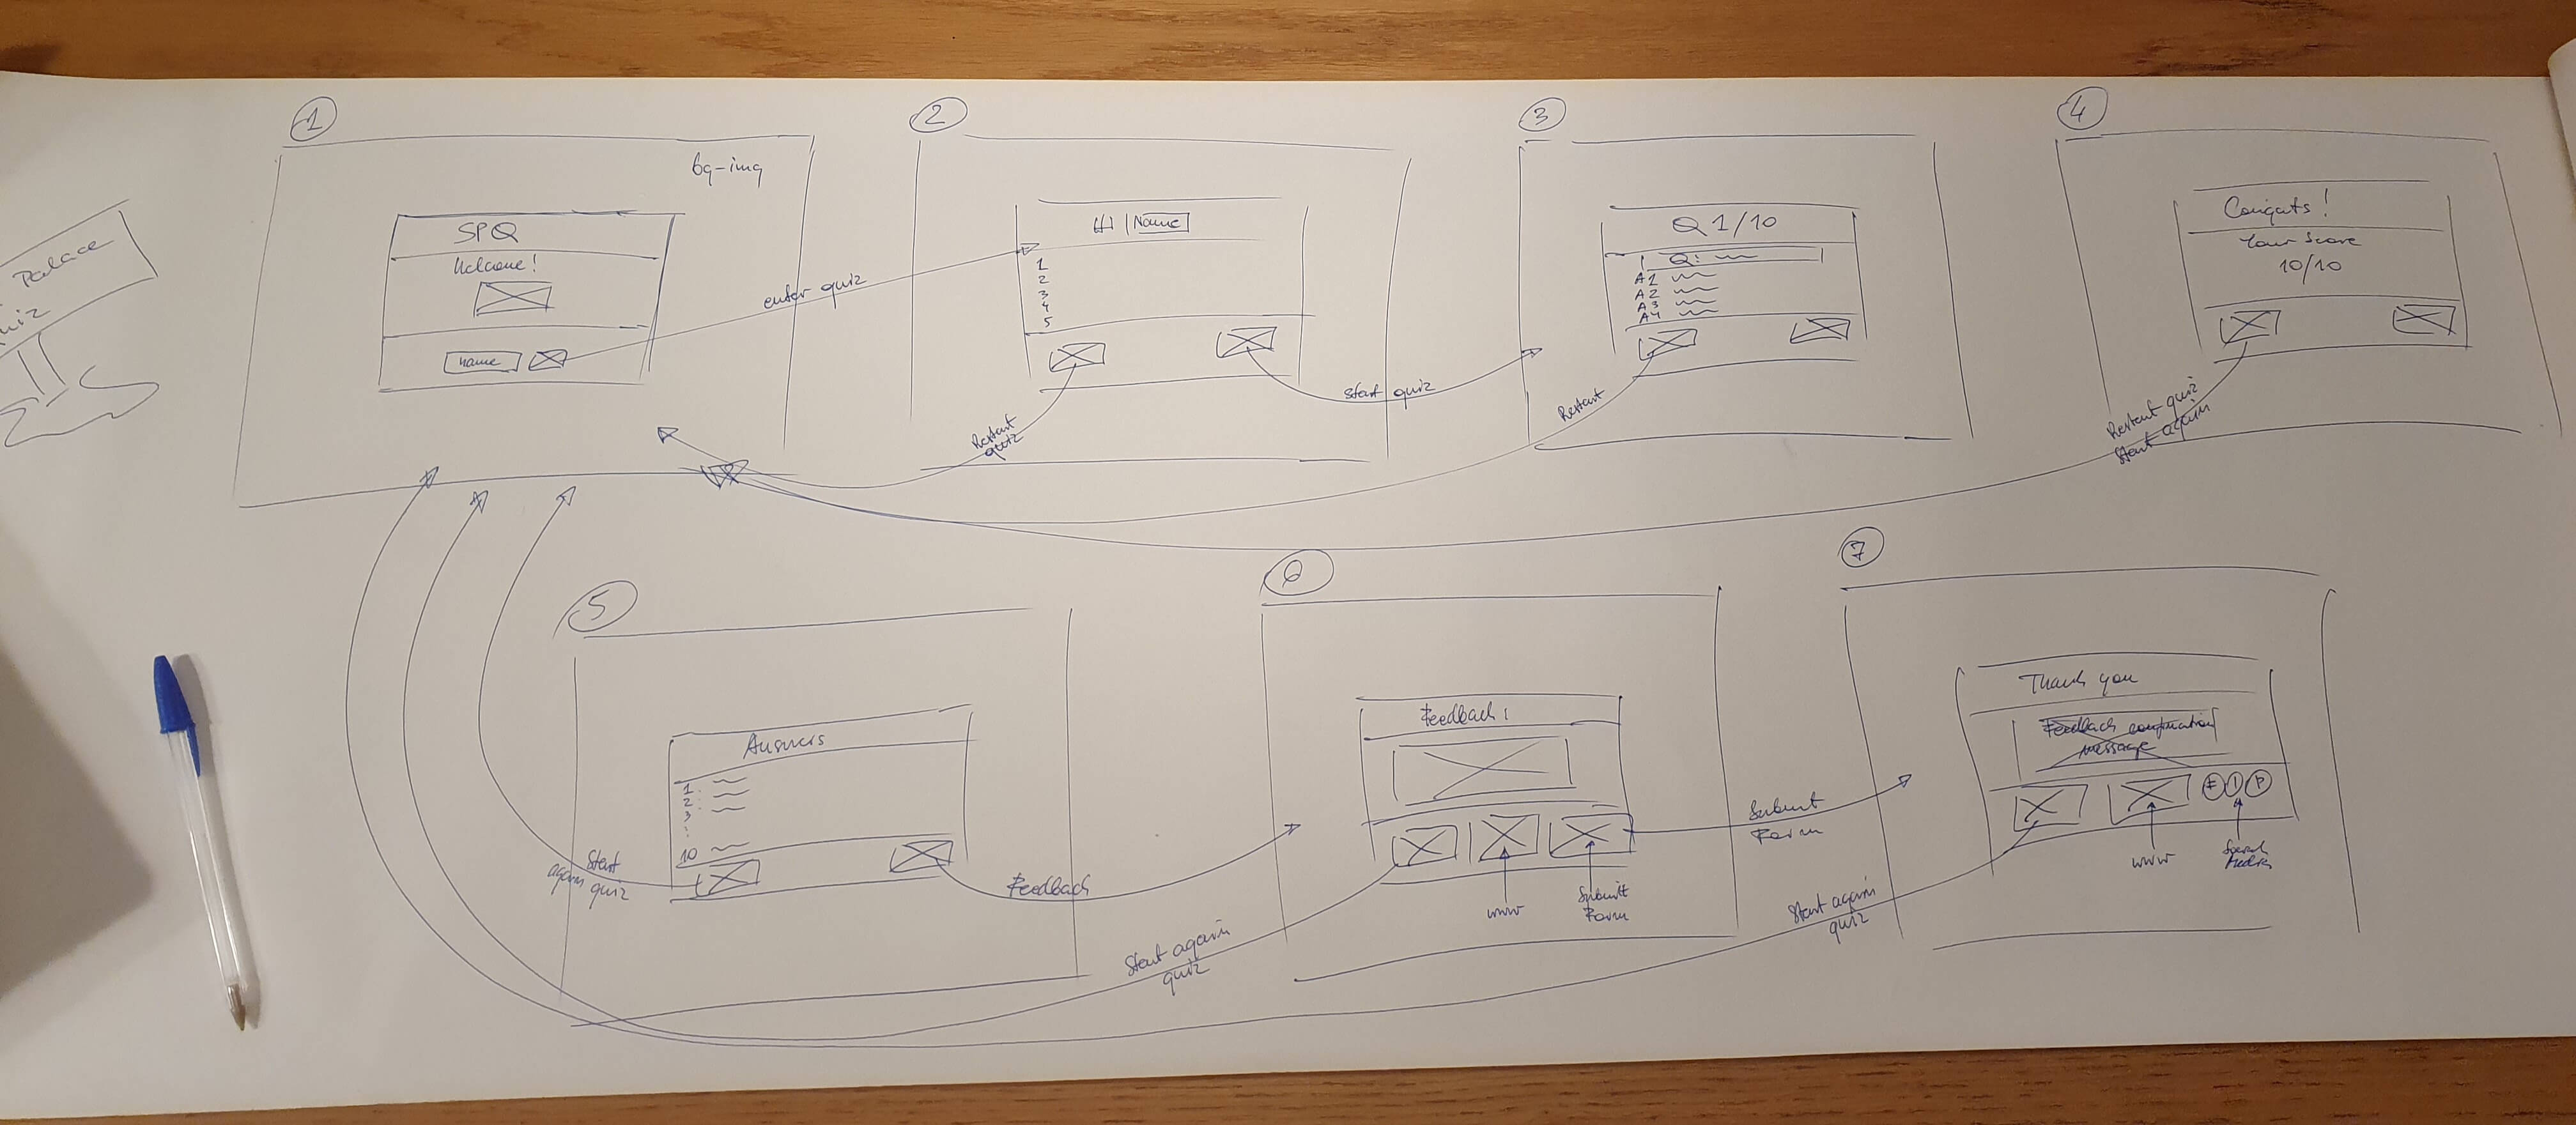 1
bg-img
SPQ
Welcome!
name
enter quiz
2
Hi Name
1
2
3
4
5
Restart
quiz
Start quiz
3
Q 1/10
Q:
A1
A2
A3
A4
Restart
4
Congrats!
Your Score
10/10
Restart quiz
Start again
Palace
5
Answers
1
2
3
10
Start
again quiz
Feedback
6
Feedback:
www
Submit
Form
Start again
quiz
Submit
Form
7
Thank you
Feedback confirmation
message
F I P
www
Social
Media
Start again
quiz